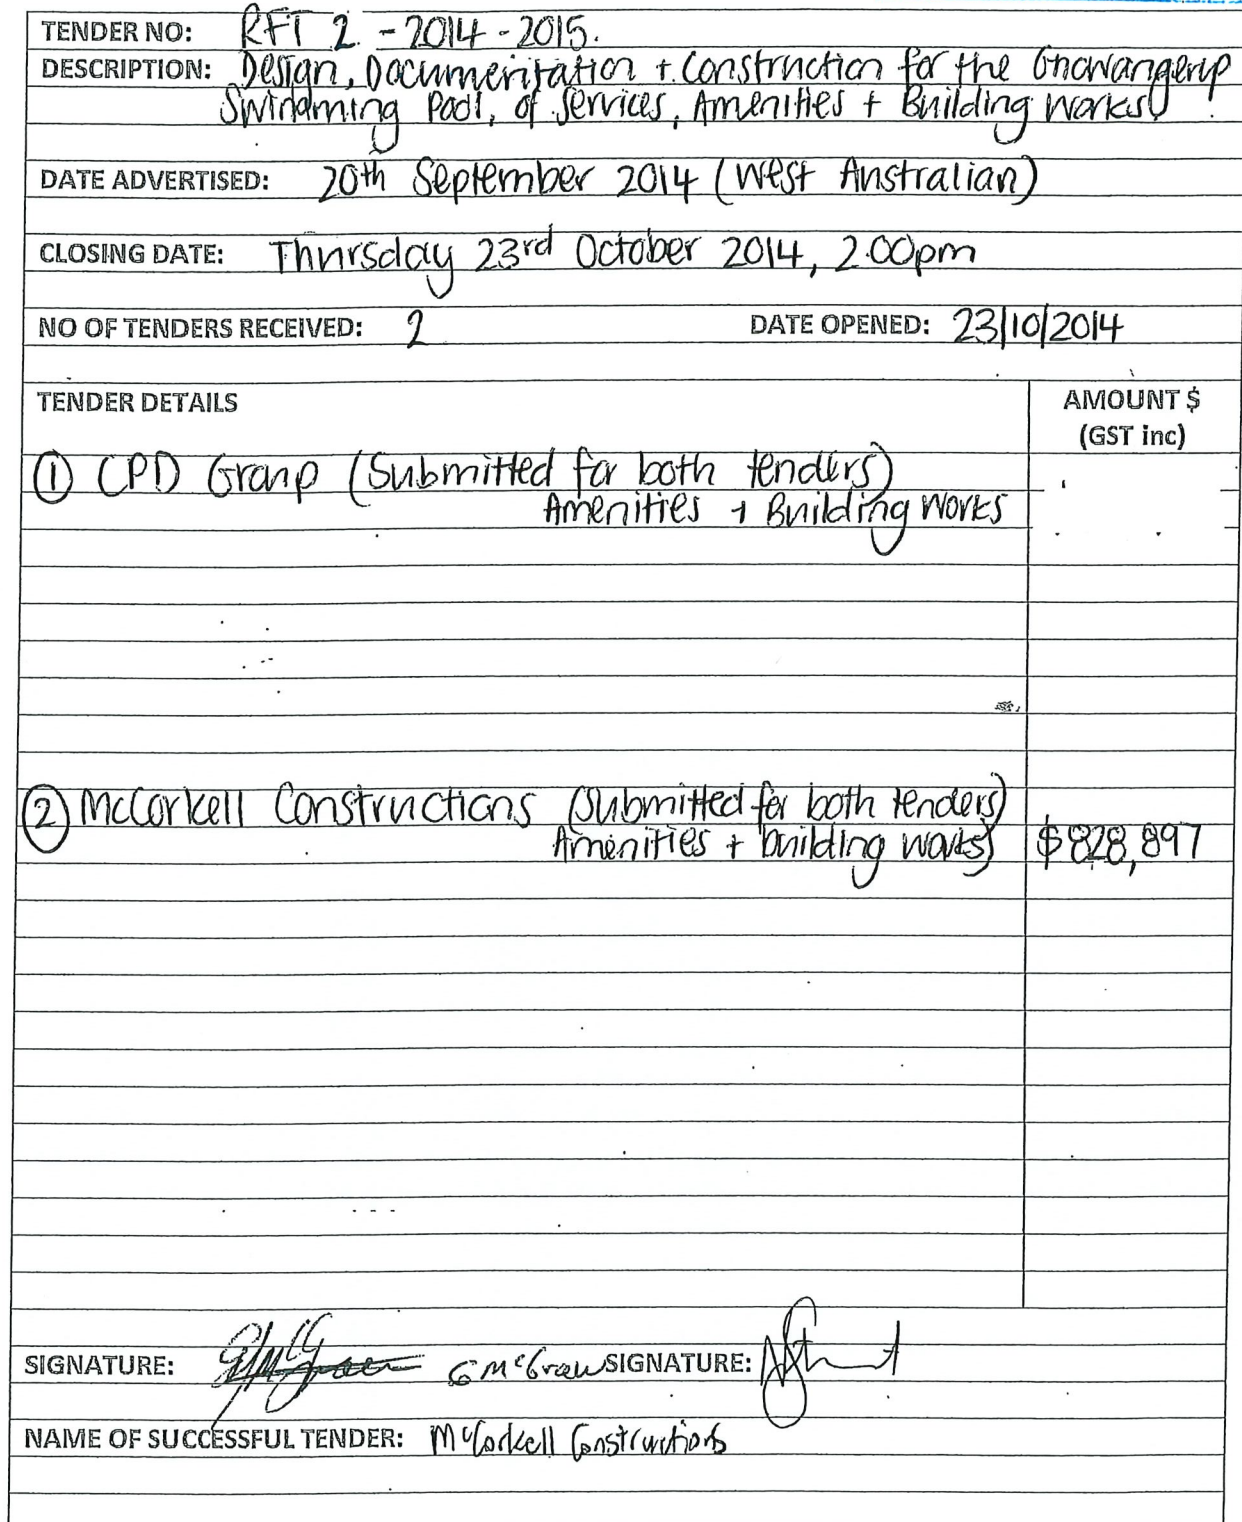 TENDER NO: RFT 2 - 2014 - 2015.
DESCRIPTION: Design, Documentation + Construction for the Gnowangerup
Swimming Pool, of Services, Amenities + Building Works.
DATE ADVERTISED: 20th September 2014 (West Australian)
CLOSING DATE: Thursday 23rd October 2014, 2.00pm
NO OF TENDERS RECEIVED: 2 DATE OPENED: 23/10/2014
TENDER DETAILS AMOUNT $
(GST inc)
① CPD Group (Submitted for both tenders)
Amenities + Building Works
② McCorkell Constructions (Submitted for both tenders)
Amenities + building works) $828,897
SIGNATURE: G McGraw SIGNATURE:
NAME OF SUCCESSFUL TENDER: McCorkell Constructions